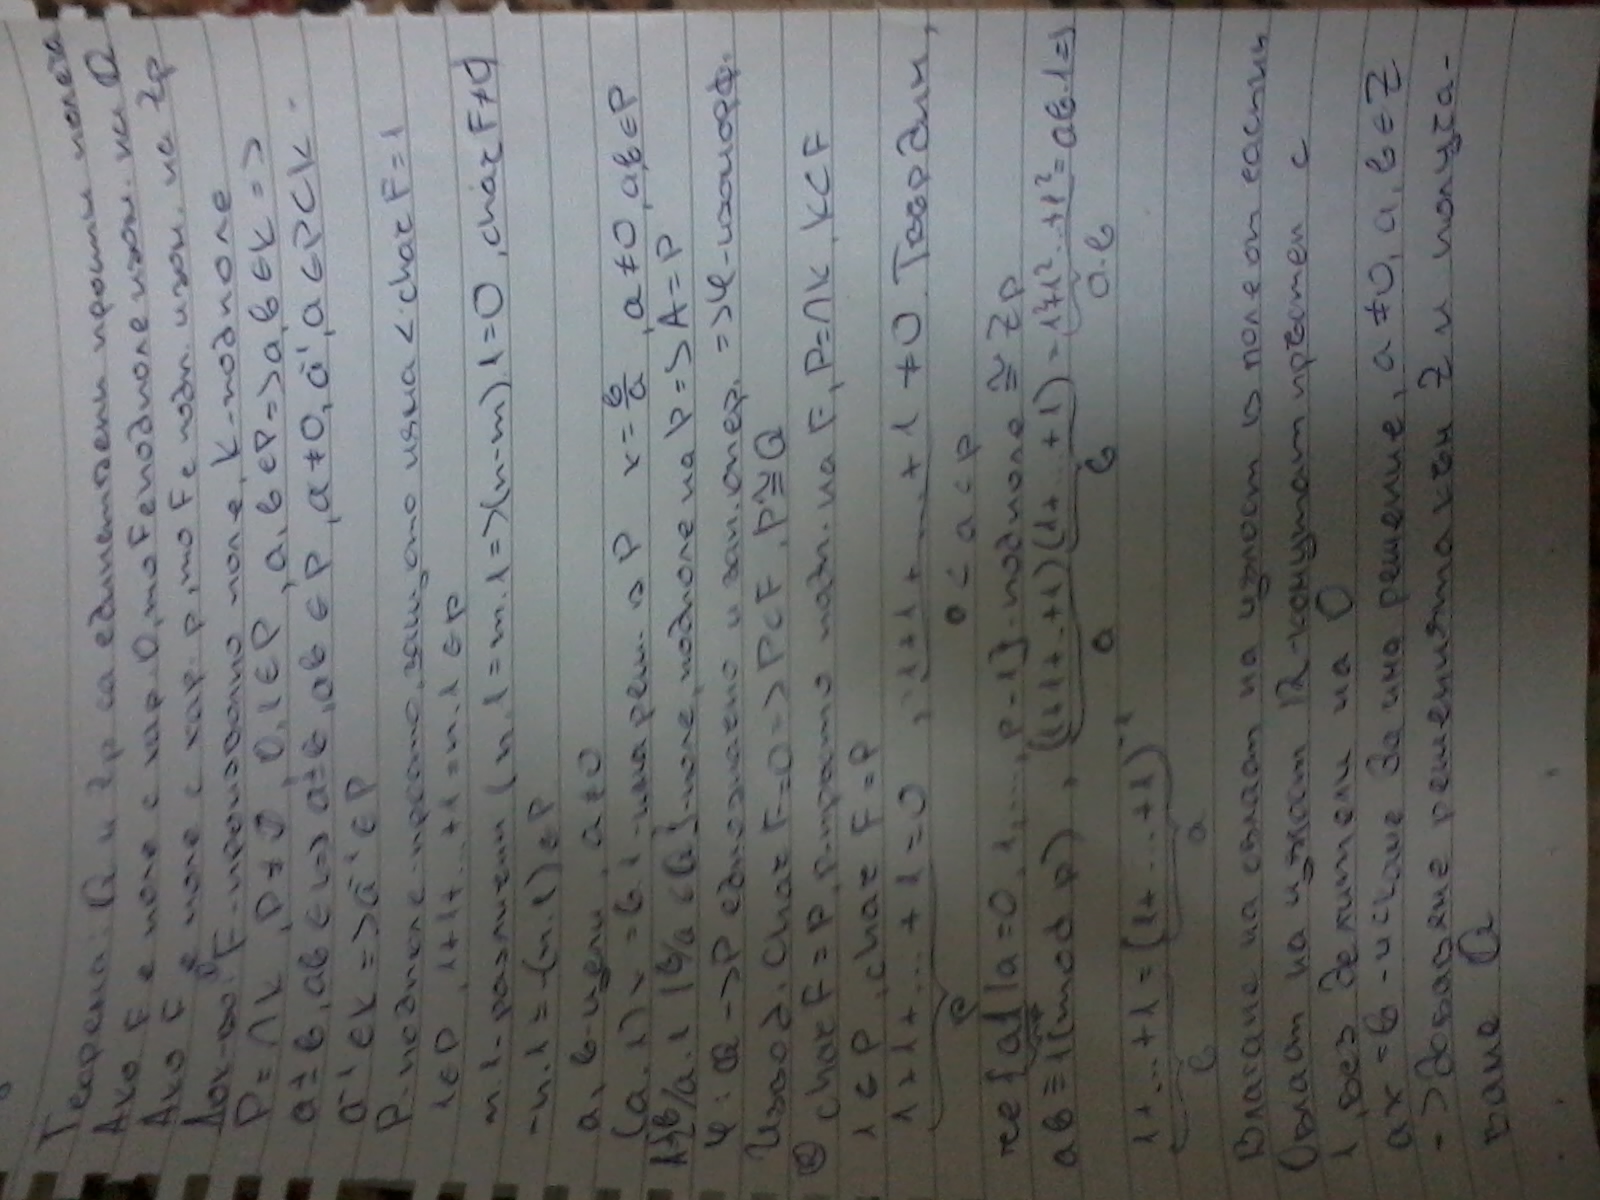 Теорема: Q и Zp са единствени прости полета
Ако F е поле с хар. 0, то F е подполе изом. на Q
Ако F е поле с хар. p, то F е подп. изом. на Zp
Док-во: F-произволно поле, K-подполе
P=∩K, P≠∅, 0,1∈P, a,b∈P=>a,b∈K=>
a±b, ab∈K=>a±b, ab∈P, a≠0, a⁻¹, a∈P⊂K
a⁻¹∈K=>a⁻¹∈P
P-подполе-просто, защото няма
1∈P, 1+1+...+1=n.1∈P
n.1-различни (n.1=m.1=>(n-m).1=0, char F≠0)
-n.1=-(n.1)∈P
a,b-цели, a≠0
(a.1)x=b.1-има реш. в P x=b/a, a≠0, a,b∈P
A={b/a.1 | b/a∈Q}-поле, подполе на P=>A=P
φ:Q->P еднозначно и зап. опер.=>φ-изоморф.
Извод. Char F=0=>P⊂F, P≅Q
② char F=p, P-просто подп. на F, P=∩K, K⊂F
1∈P, char F=p
1+1+...+1=0, 1+1+...+1≠0 Твърдим,
p 0<a<p
че {a1|a=0,1,...,p-1}-подполе≅Zp
ab≡1(mod p), (1+1+...+1)(1+...+1)=1²+1²...+1²=ab.1=1
a b a.b
1+...+1=(1+...+1)⁻¹
b a
Влагане на област на цялост в поле от частни
Област на цялост R-комутат. пръстен с
1, без делители на 0
ax=b-искаме да има решение, a≠0, a,b∈Z
->добавяме решенията към Z и получа-
ваме Q